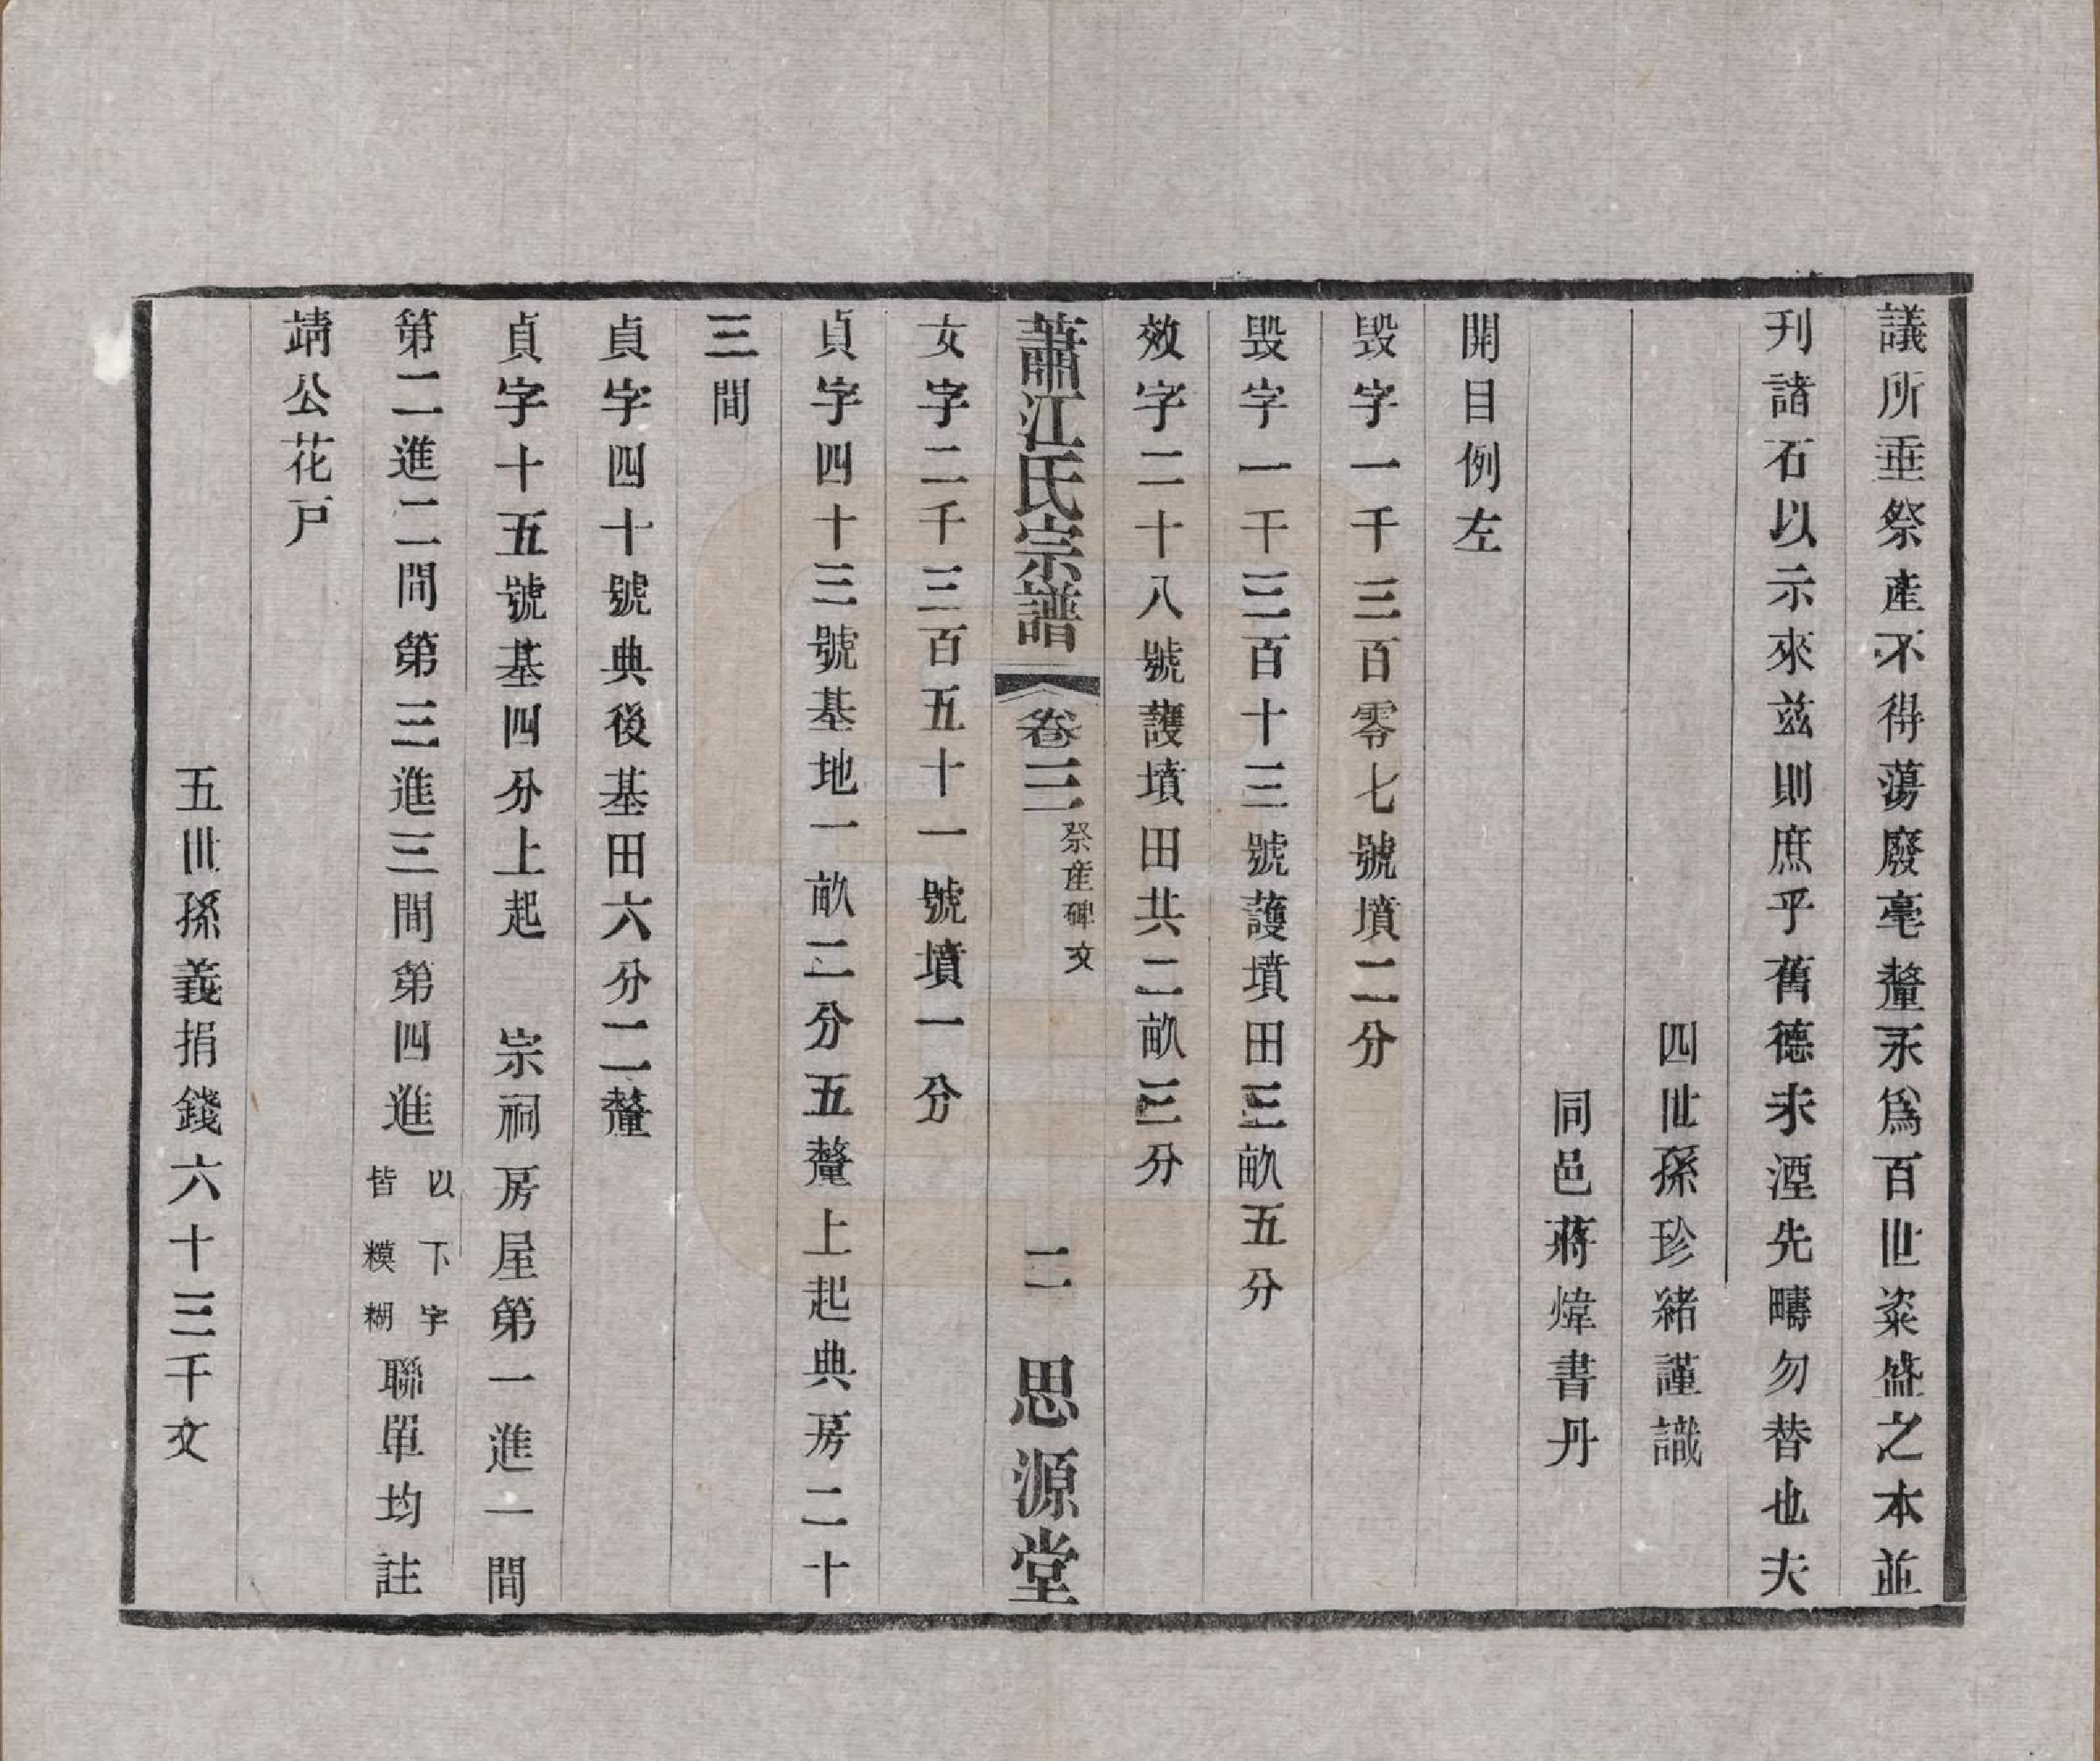 議所垂祭產不得蕩廢毫釐永爲百世粢盛之本並
刊諸石以示來兹則庶乎舊德未湮先疇勿替也夫
四世孫珍緒謹識
同邑蔣煒書丹
開目例左
毀字一千三百零七號墳二分
毀字一千三百十三號護墳田三畝五分
效字二十八號護墳田共二畝三分
蕭江氏宗譜 卷三 祭産碑文 二 思源堂
女字二千三百五十一號墳一分
貞字四十三號基地一畝二分五釐上起典房二十
三間
貞字四十號典後基田六分二釐
貞字十五號基四分上起 宗祠房屋第一進一間
第二進二間第三進三間第四進以下字皆糢糊聯單均註
靖公花戸
五世孫義捐錢六十三千文